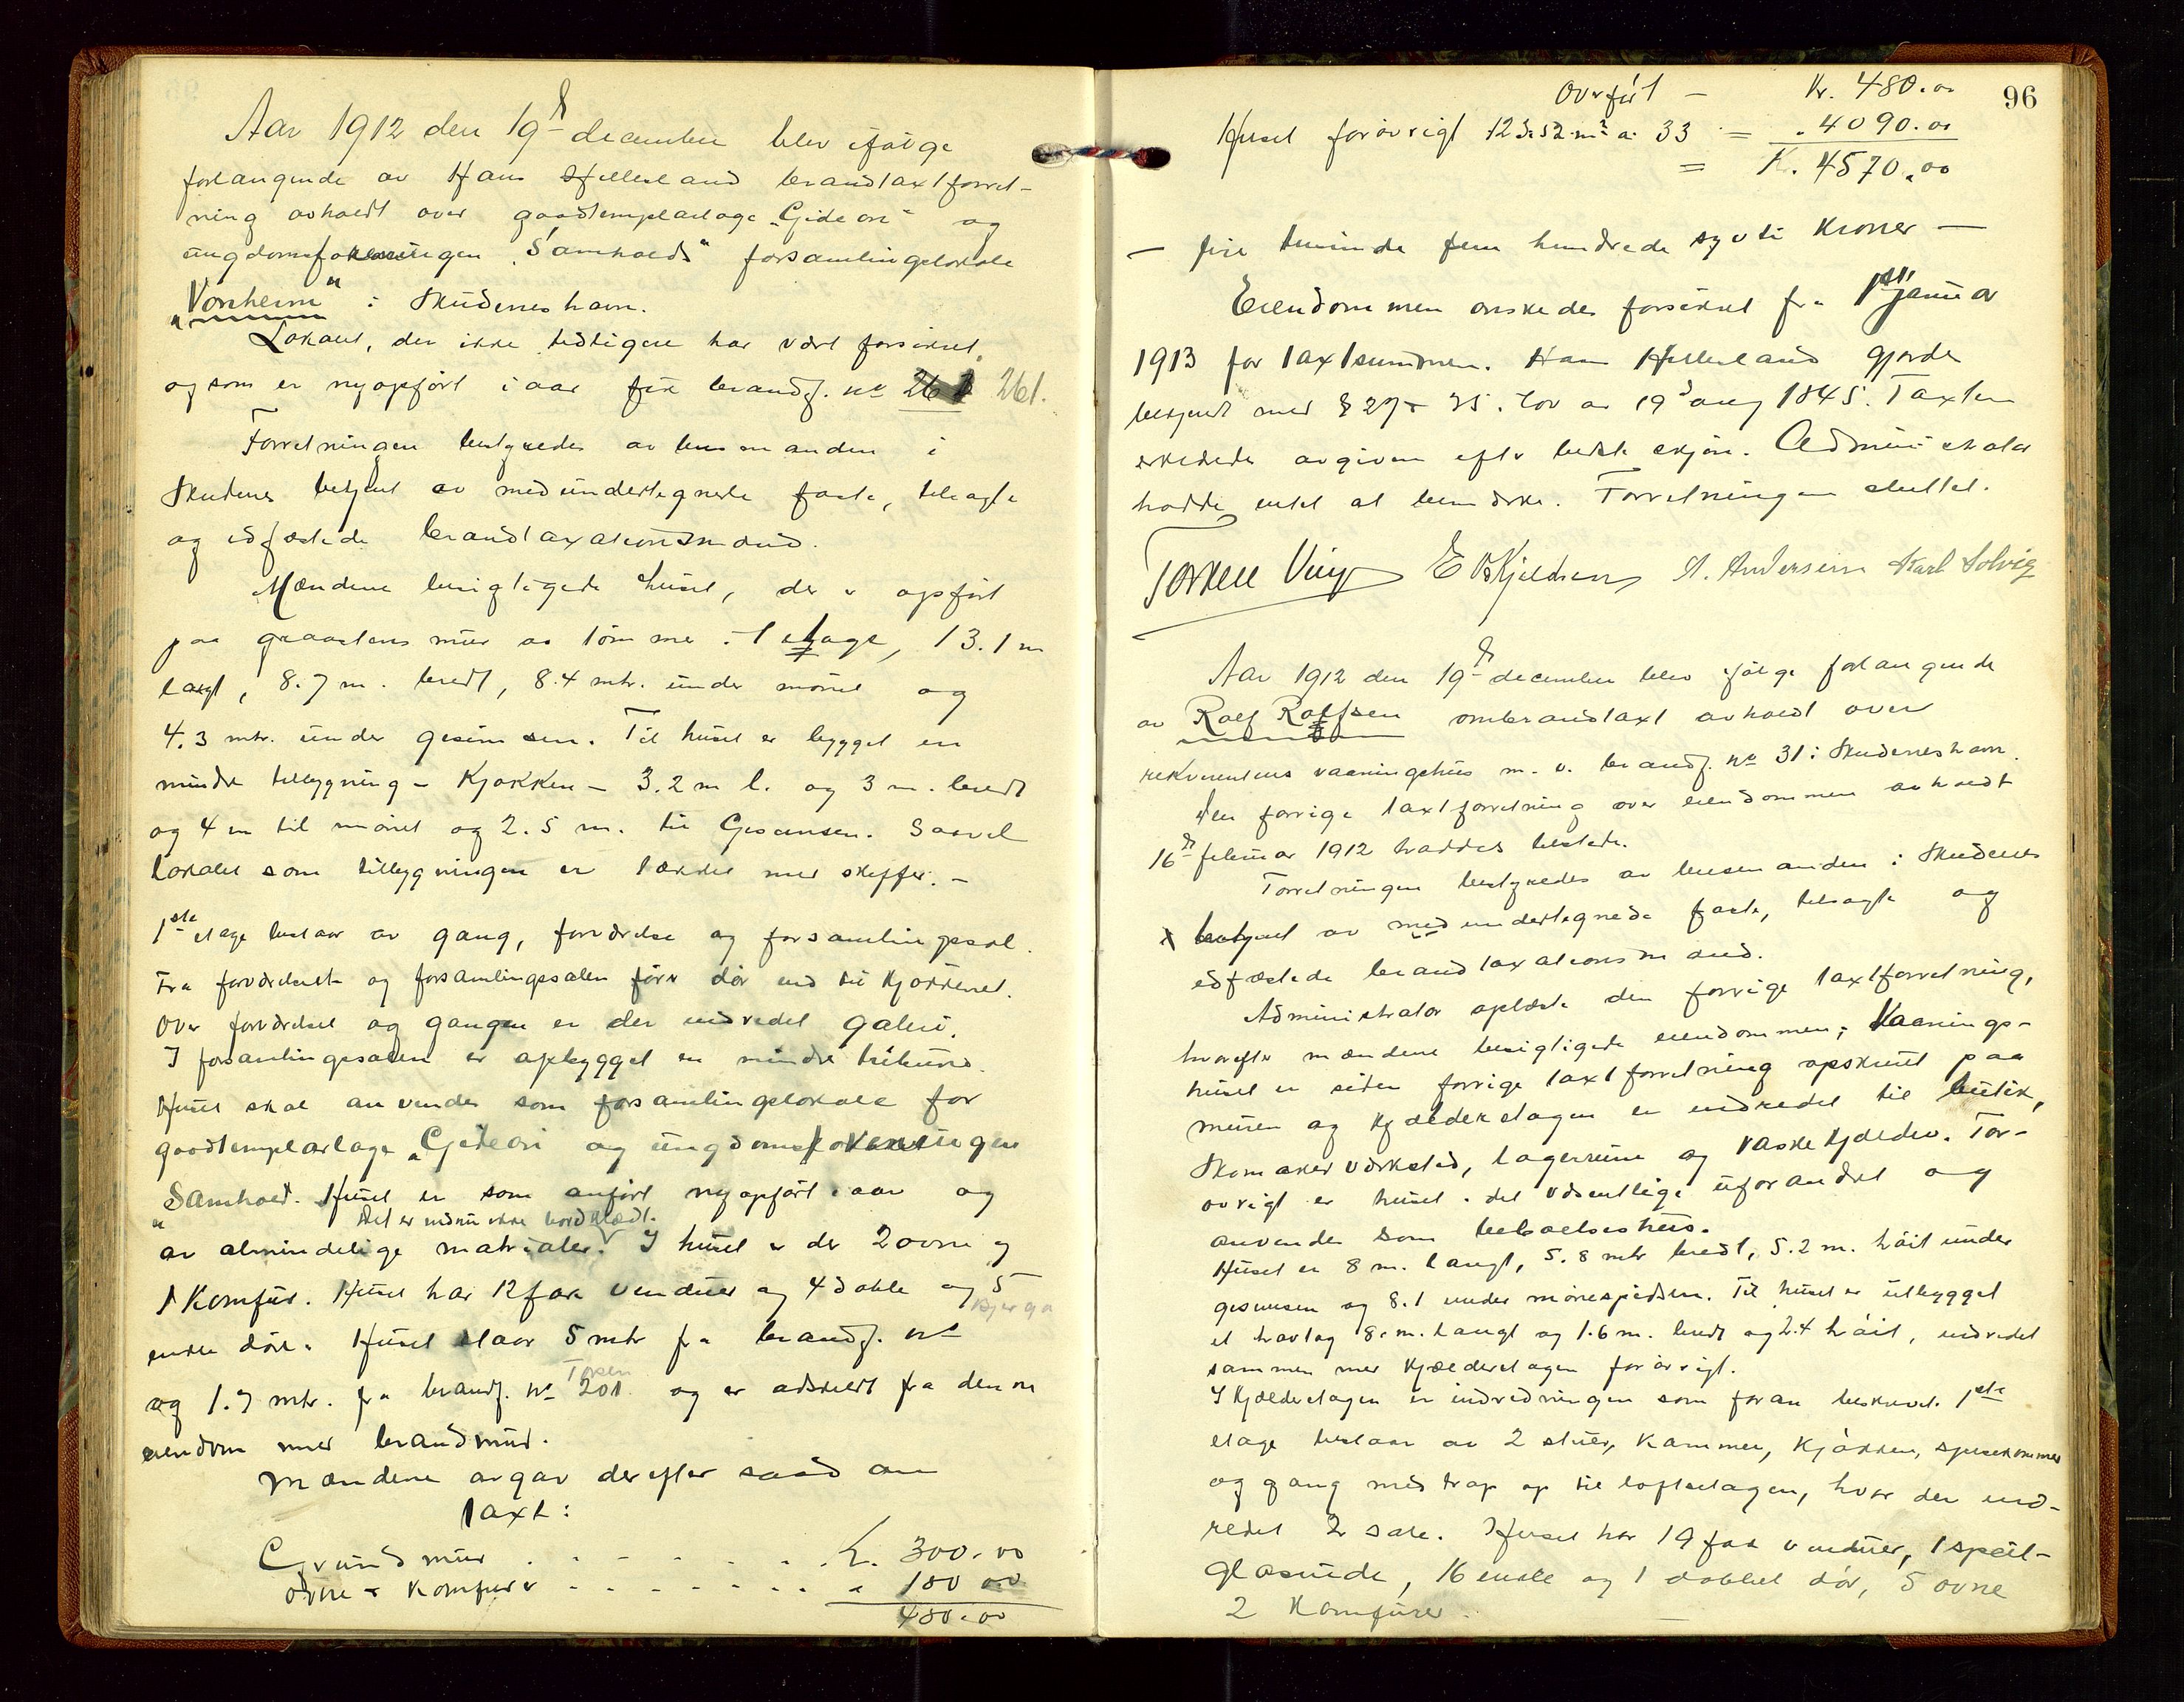 Aar 1912 den 19d december blev ifølge
forlangende av Hans Hillesland brandtaxtforret-
ning avholdt over goodtemplarloge "Gideon" og
ungdomsforeningen "Samhold"s forsamlingslokale
"Vonheim" i Skudeneshavn.
Lokalet, der ikke tidligere har vært forsikret,
og som er nyopført i aar fik brandf. No 261.
Forretningen bestyredes av lensmanden i
Skudenes betjent av medundertegnede faste, tilsagte
og edfæstede brandtaxationsmænd.
Mændene besigtigede huset, der er opført
paa graastens mur av tømmer i 1 etage, 13.1 m
langt, 8.7 m. bredt, 8.4 mtr. under mønet og
4.3 mtr. under gesimsen. Til huset er bygget en
mindre tilbygning - Kjøkken - 3.2 m l. og 3 m. bredt
og 4 m til mønet og 2.5 m. til Gesimsen. Saavel
lokalet som tilbygningen er tækket med skiffer. -
1ste etage bestaar av gang, forværelse og forsamlingssal.
Fra forværelset og forsamlingssalen fører dør ind til Kjøkkenet.
Over forværelset og gangen er der indredet galleri.
I forsamlingssalen er opbygget en mindre tribune.
Huset skal anvendes som forsamlingslokale for
goodtemplarloge "Gideon og ungdomsforeningen
"Samhold. Huset er som anført nyopført i aar og
Det er endnu ikke bordklædt.
av almindelige materialer. I huset er der 2 ovne og
1 Komfur. Huset har 12 fag vinduer og 4 doble og 5
Bjerga
enkle døre. Huset staar 5 mtr fra brandf. No
Torsen
og 1.7 mtr. fra brandf. No 201 og er adskildt fra denne
eiendom med brandmur.
Mændene avgav derefter saadan
taxt:
Grundmur . . . . . . Kr. 300.00
Ovne & Komfurer . . . . . . " 180 00
480.00
96
Overført - Kr. 480.00
Huset forøvrigt 123.52 m2 a 33 = " 4090.00
= Kr. 4570.00
- fire tusinde fem hundrede sytti Kroner -
Eiendommen ønskedes forsikret fra 1st januar
1913 for taxtsummen. Hans Hillesland gjordes
bekjendt med § 27 & 35 i lov av 19d aug 1845. Taxten
erklæredes avgiven efter bedste skjøn. Administrator
hadde intet at bemærke. Forretningen sluttet.
Torkell Vinje E B Kjeldsen A. Andersen Karl Solvig
Aar 1912 den 19d december blev ifølge forlangende
av Rolf Rolfsen ombrandtaxt avholdt over
rekvirentens vaaningshus m. v. brandf. No 31 i Skudeneshavn.
Den forrige taxtforretning over eiendommen avholdt
16d februar 1912 haddes tilstede.
Forretningen bestyredes av lensmanden i Skudenes
betjent av medundertegnede faste, tilsagte og
edfæstede brandtaxationsmænd.
Administrator oplæste den forrige taxtforretning,
hvorefter mændene besigtigede eiendommen; Vaanings-
huset er siden forrige taxtforretning opskruet paa
muren og Kjælderetagen er indredet til butik,
Skomakerværksted, lagerrum og vaskekjælder. For-
øvrigt er huset i det væsentlige uforandret og
anvendes som beboelseshus.
Huset er 8 m. langt, 5.8 mtr bredt, 5.2 m. høit under
gesimsen og 8.1 under mønespidsen. Til huset er utbygget
et havlag 8. m. langt og 1.6 m. bredt og 2.4 høit, indredet
sammen med Kjælderetagen forøvrigt.
I Kjælderetagen er indredningen som foran beskrevet. 1ste
etage bestaar av 2 stuer, Kammer, Kjøkken, spisekammer
og gang med trap op til loftsetagen, hvor der ind-
redet 2 sale. Huset har 19 fag vinduer, 1 speil-
glasrude, 16 enkle og 1 dobbel dør, 5 ovne
2 Komfurer.